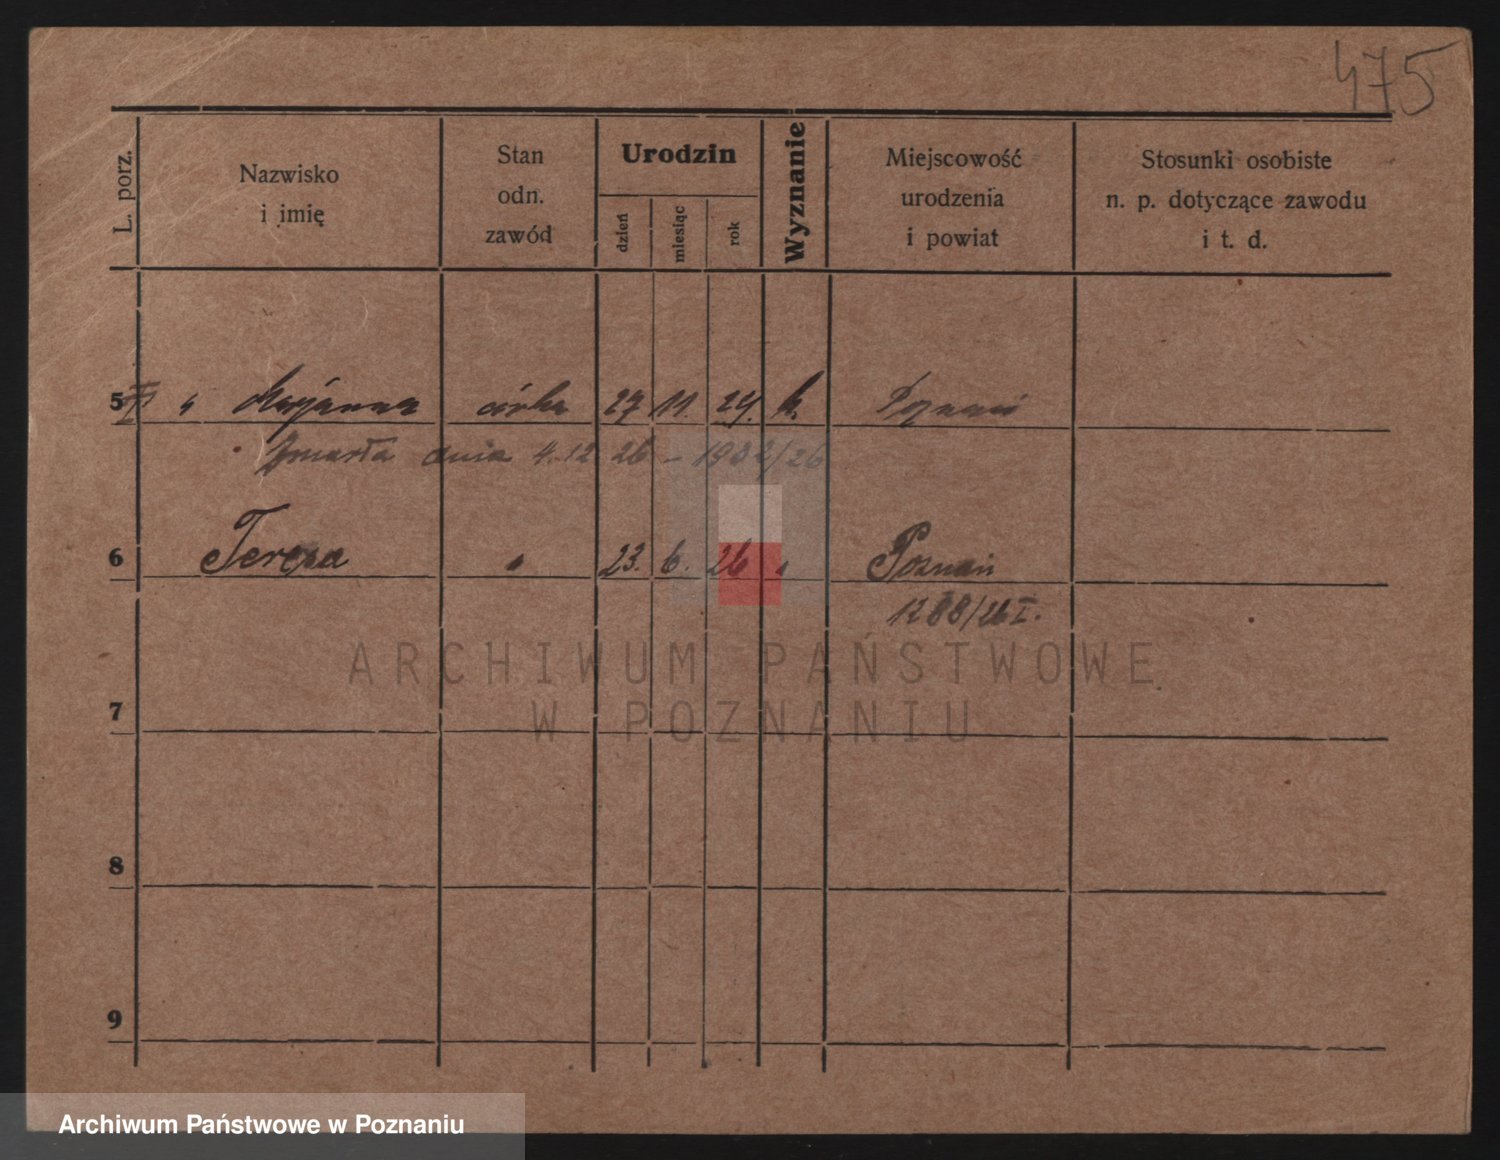 475
L. porz.
Nazwisko
i imię
Stan
odn.
zawód
Urodzin
dzień
miesiąc
rok
Wyznanie
Miejscowość
urodzenia
i powiat
Stosunki osobiste
n. p. dotyczące zawodu
i t. d.
5 Marjanna córka 27 11. 24. k. Poznań
Zmarła dnia 4.12 26 - 1932/26
6 Teresa " 23. 6. 26 " Poznań
1288/26 I.
7
8
9
ARCHIWUM PAŃSTWOWE
W POZNANIU
Archiwum Państwowe w Poznaniu